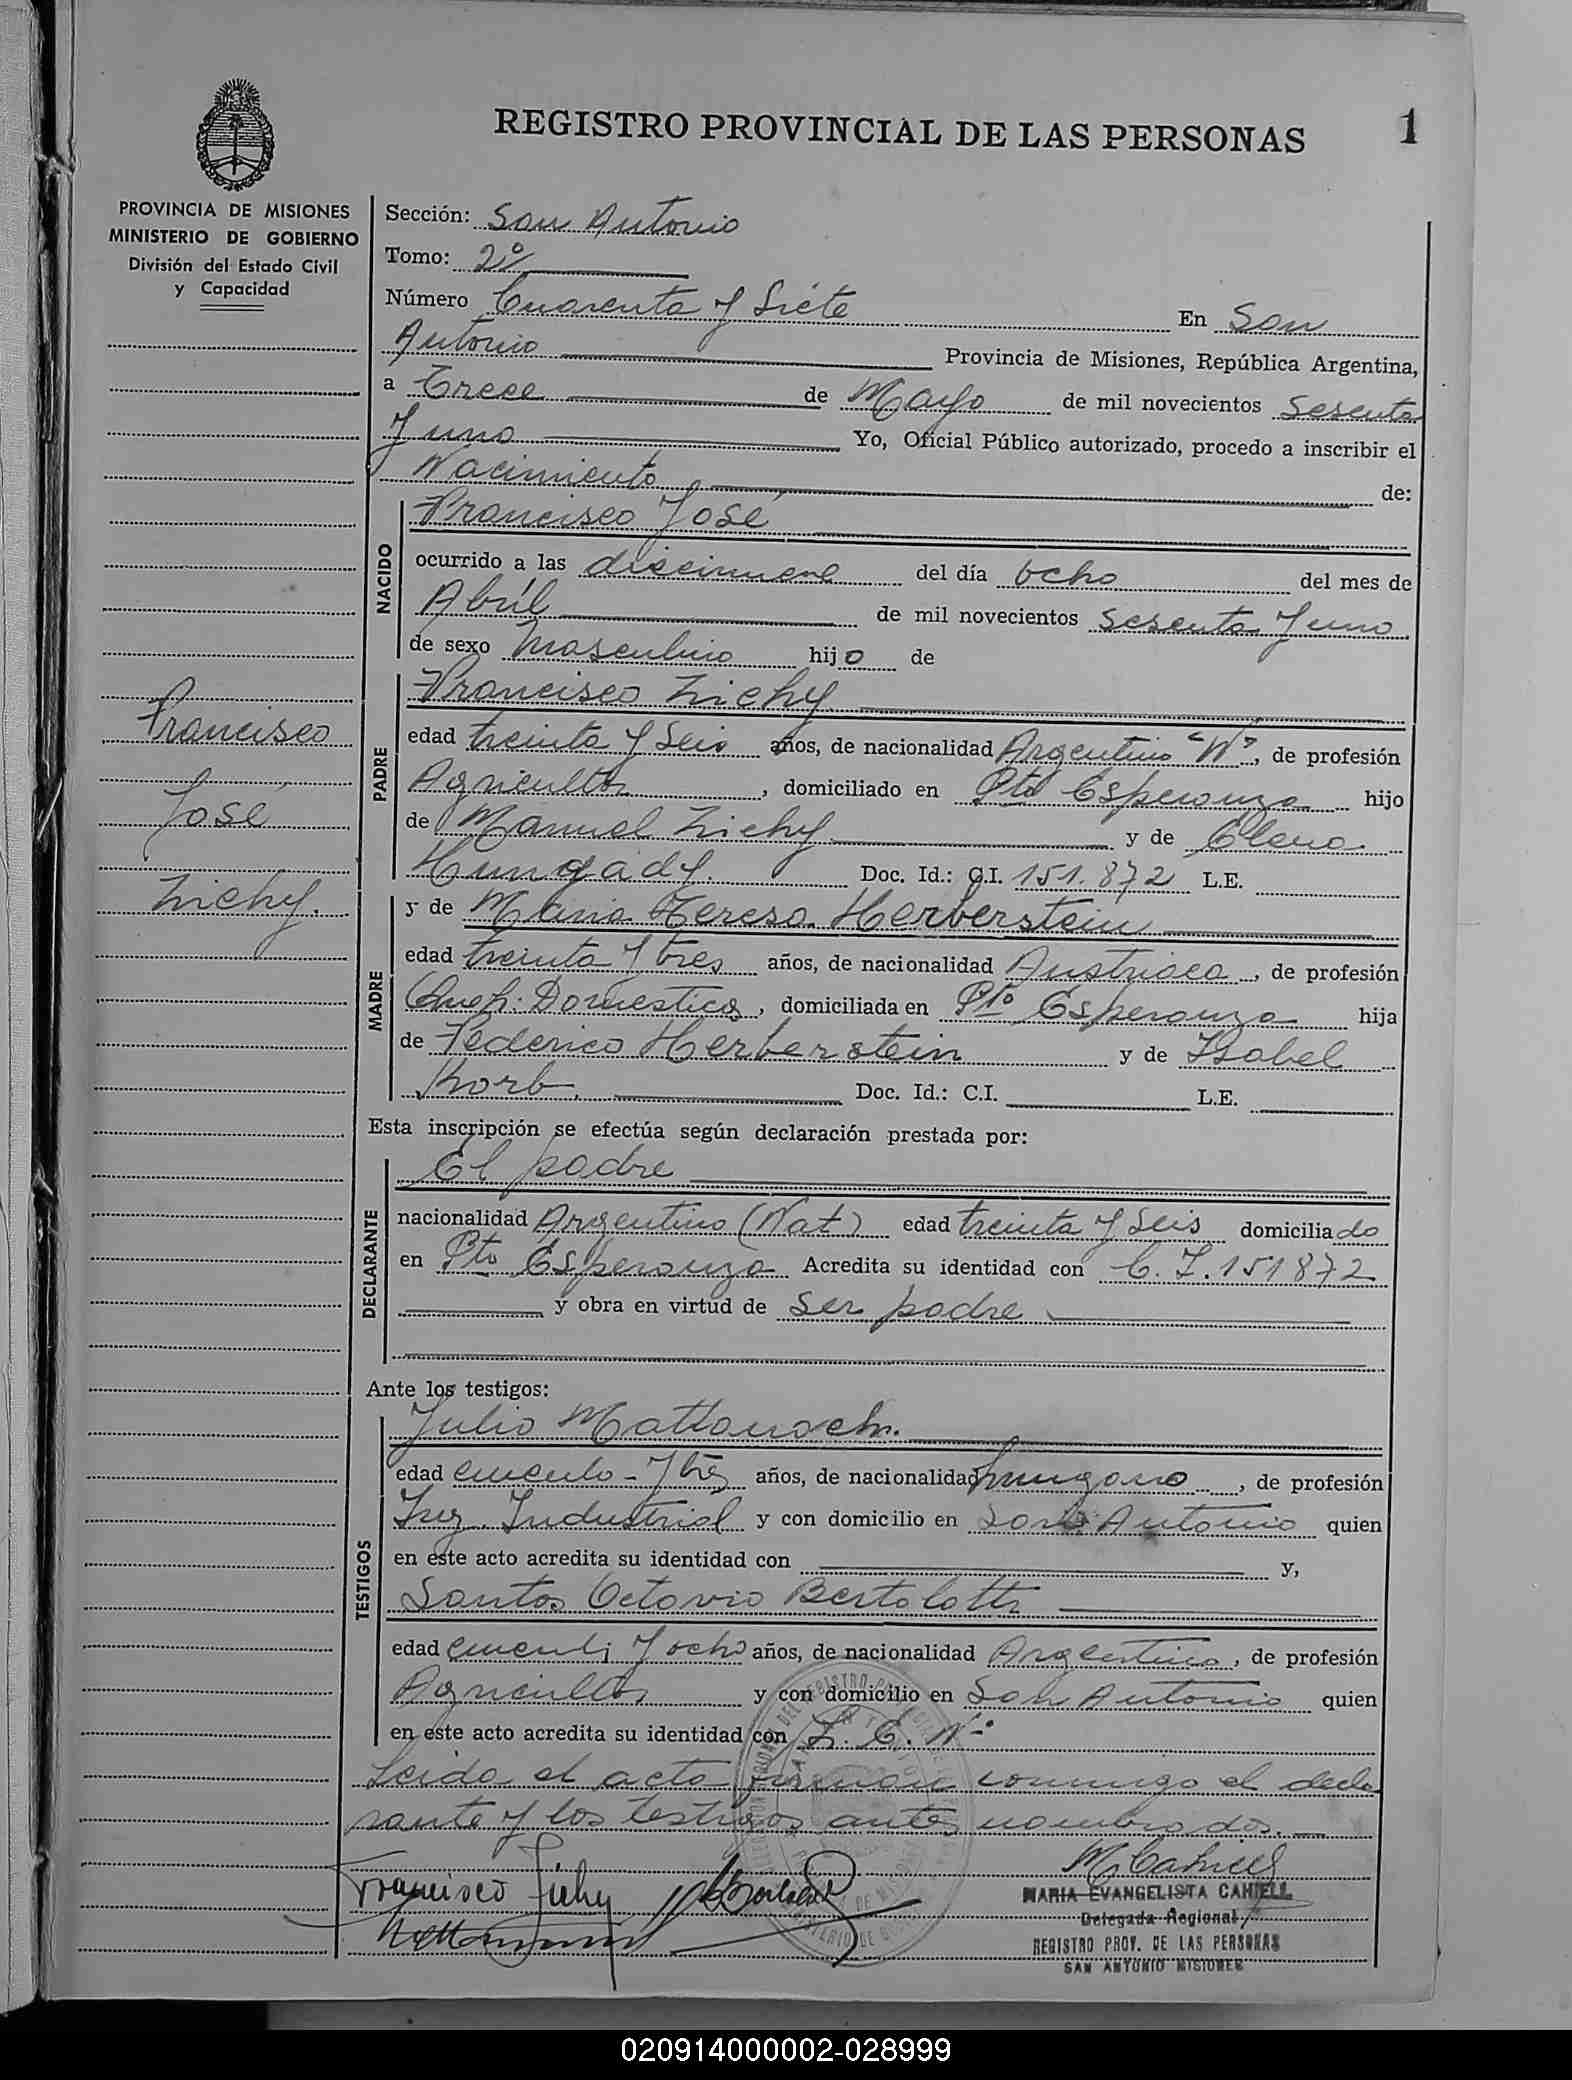 REGISTRO PROVINCIAL DE LAS PERSONAS
1
PROVINCIA DE MISIONES
MINISTERIO DE GOBIERNO
División del Estado Civil
y Capacidad
Francisco
José
Zichy.
Sección: San Antonio
Tomo: 2º
Número Cuarenta y Siete En San
Antonio Provincia de Misiones, República Argentina,
a Trece de Mayo de mil novecientos Sesenta
y uno Yo, Oficial Público autorizado, procedo a inscribir el
Nacimiento de:
NACIDO
Francisco José
ocurrido a las diecinueve del día ocho del mes de
Abril de mil novecientos Sesenta y uno
de sexo Masculino hijo de
PADRE
Francisco Zichy
edad treinta y Seis años, de nacionalidad Argentino "N", de profesión
Agricultor, domiciliado en Pto Esperanza hijo
de Manuel Zichy y de Elena
Hungady. Doc. Id.: C.I. 151.872 L.E.
MADRE
y de Maria Teresa Herberstein
edad treinta y tres años, de nacionalidad Austriaca, de profesión
Queh: Domesticos, domiciliada en Pto Esperanza hija
de Federico Herberstein y de Isabel
Korb. Doc. Id.: C.I. L.E.
Esta inscripción se efectúa según declaración prestada por:
DECLARANTE
El padre
nacionalidad Argentino (Nat) edad treinta y Seis domiciliado
en Pto Esperanza Acredita su identidad con C.I. 151872
y obra en virtud de ser padre
Ante los testigos:
TESTIGOS
Julio
edad y tres años, de nacionalidad hungaro, de profesión
Ing. Industrial y con domicilio en San Antonio quien
en este acto acredita su identidad con y,
Santos Octavio Bertolotti
edad y ocho años, de nacionalidad Argentino, de profesión
Agricultor y con domicilio en San Antonio quien
en este acto acredita su identidad con L. E. Nº
Leida el acta firman conmigo el decla
rante y los testigos antes nombrados.
Francisco Zichy
MARIA EVANGELISTA CAHIELL
Delegada Regional
REGISTRO PROV. DE LAS PERSONAS
SAN ANTONIO MISIONES
020914000002-028999